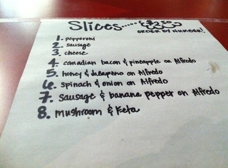 Slices....
ORDER BY NUMBER!
1. pepperoni
2. sausage
3. cheese
4. canadian bacon & pineapple on Alfredo
5. honey & Jalapeno on Alfredo
6. spinach & onion on Alfredo
7. Sausage & banana pepper on Alfredo
8. Mushroom & Feta